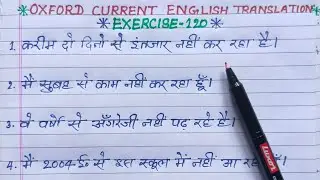 *OXFORD CURRENT ENGLISH TRANSLATION*
*EXERCISE-120*
1. करीम दो दिनों से इंतजार नहीं कर रहा है।
2. मैं सुबह से काम नहीं कर रहा हूँ।
3. वे वर्षों से अँगरेजी नहीं पढ़ रहे है।
4. मैं 2004 ई० से इस स्कूल में नहीं आ रहा हूँ।